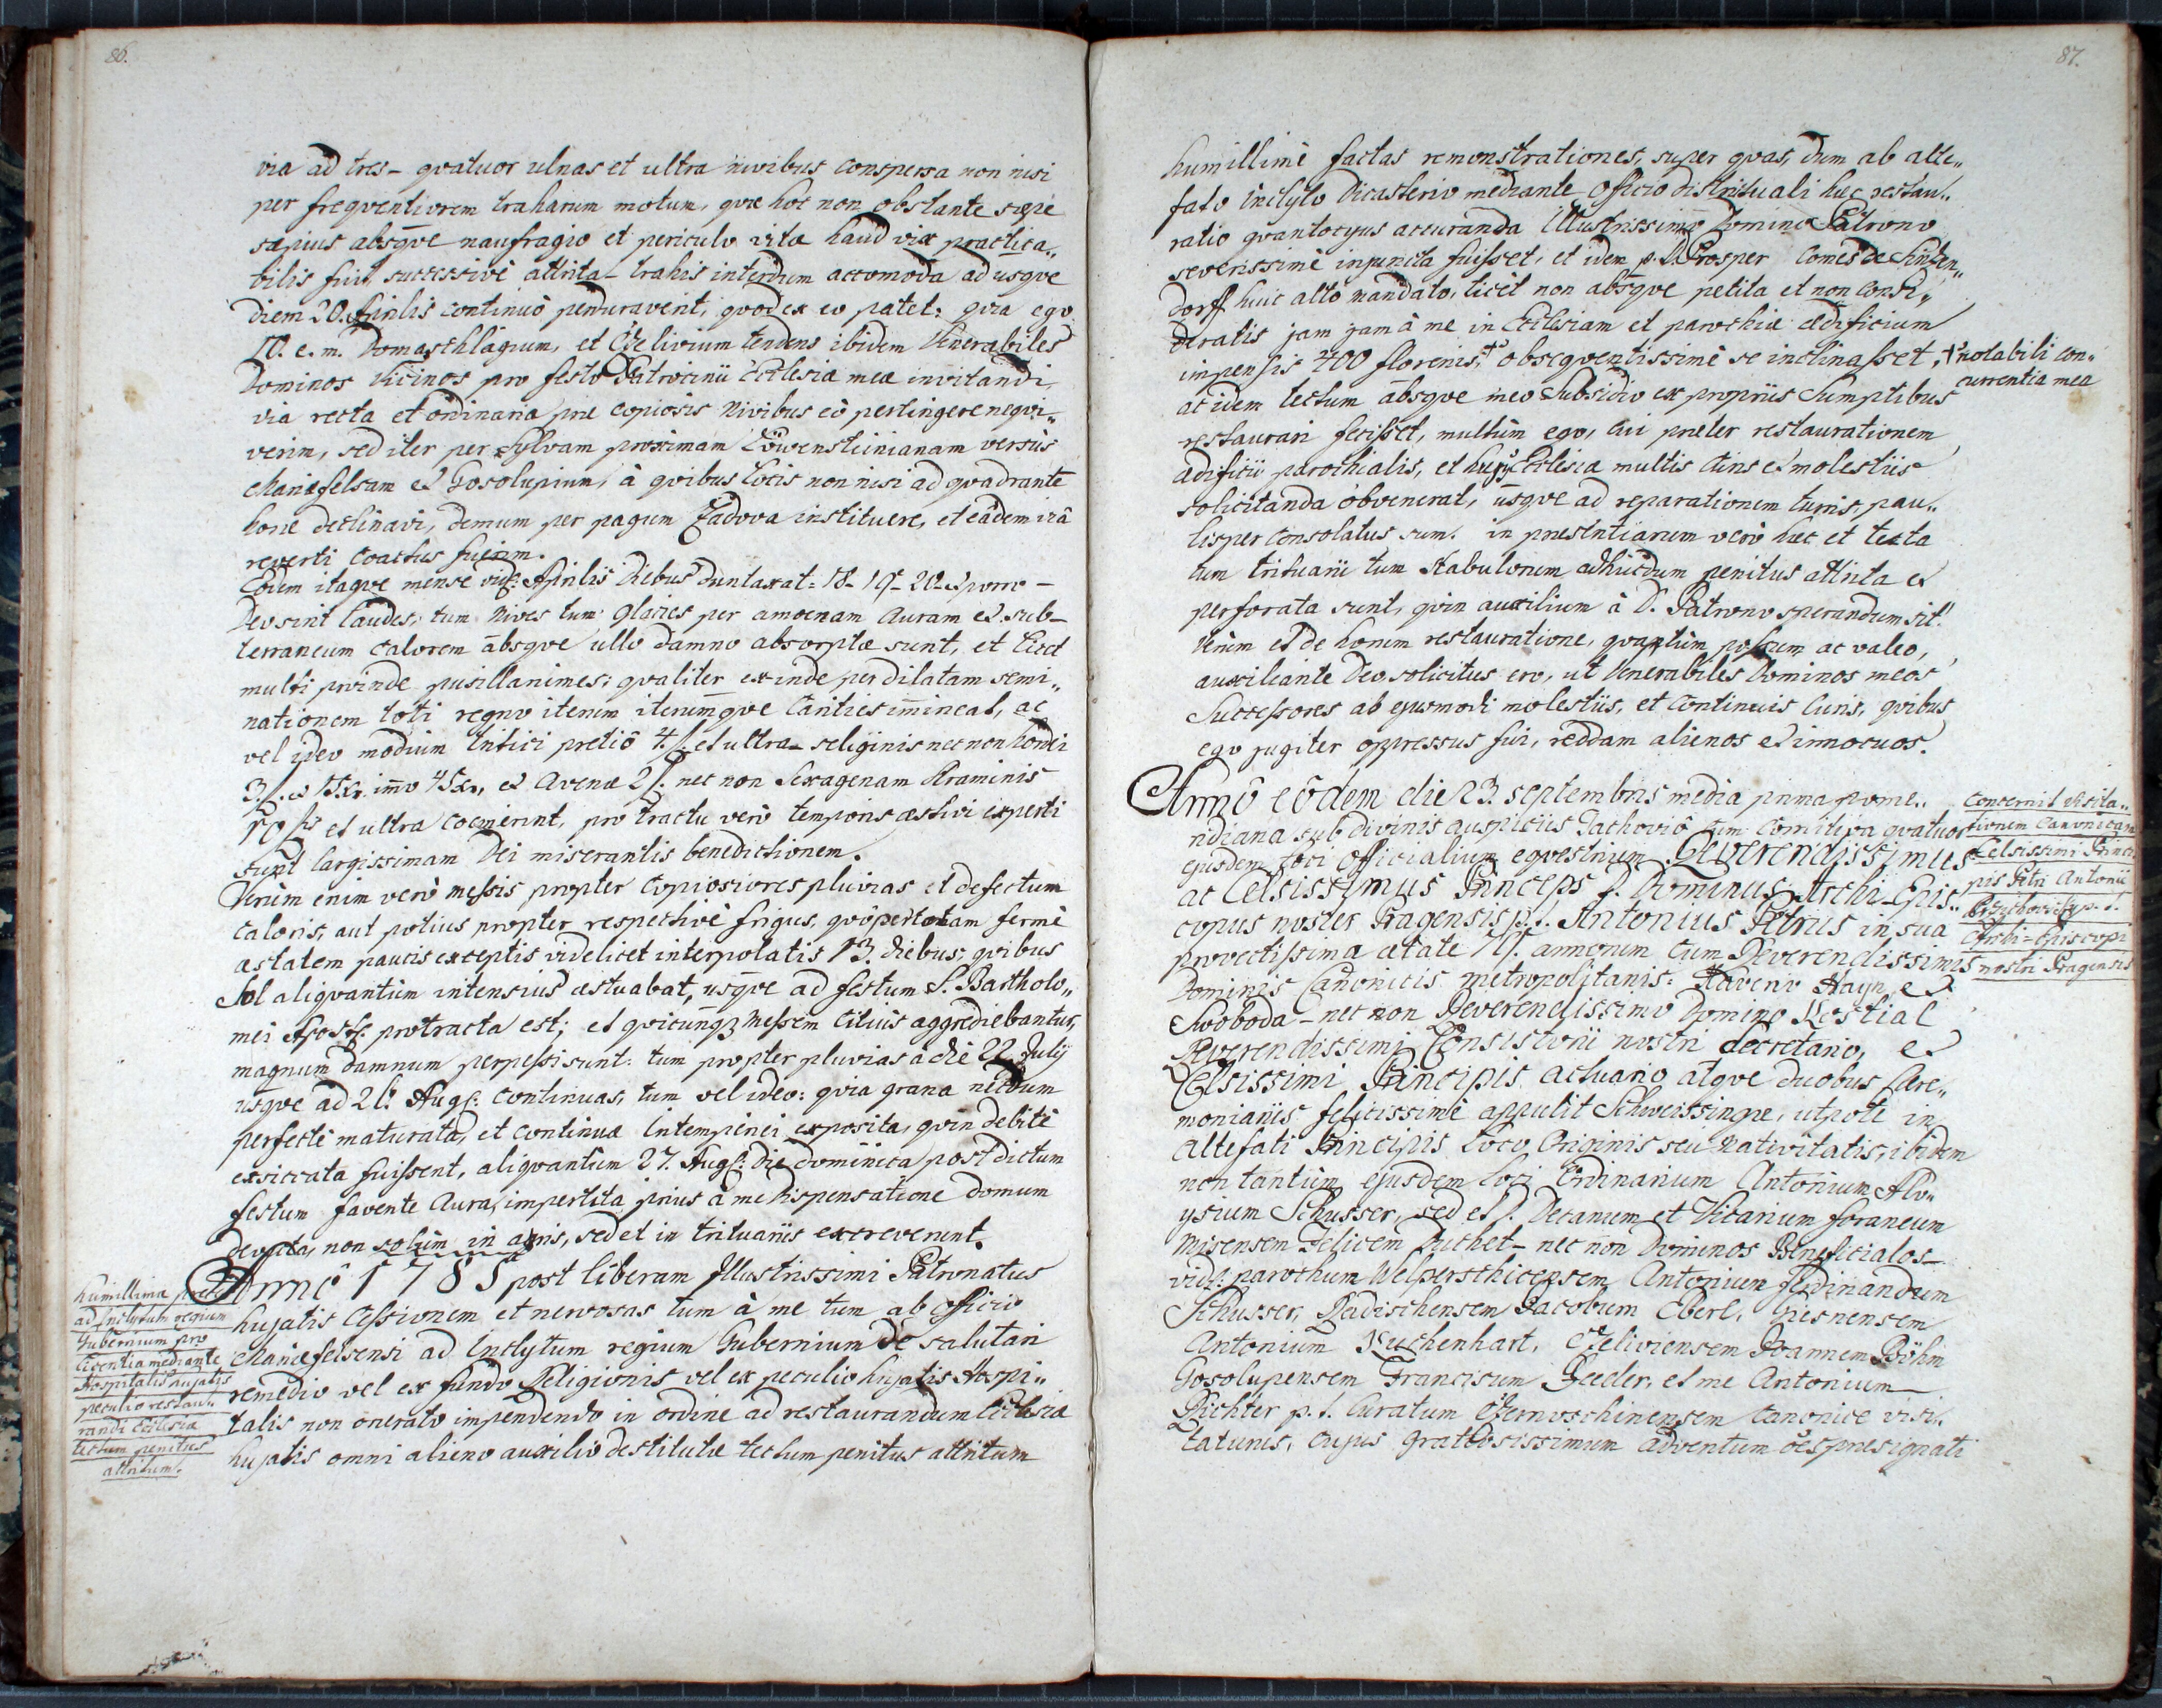 86.
via ad tres - qvatuor ulnas et ultra nivibus conspersa non nisi
per freqventiorem traharum motum, qvæ hoc non obstante sæpe
sæpius absqve naufragio et periculo vitæ haud viæ practica„
bilis fuit, successivè attrita - trahis interdum accomoda ad usqve
diem 20. Aprilis continuò perduraverit, qvod ex eo patet: qvia ego
10. e. m. Domaschlagium, et Czelivium tendens ibidem Venerabiles
Dominos Vicinos pro festo Patrocinii Ecclesiæ meæ invitandi
via recta et ordinaria præ copiosis Nivibus eò pertingere neqvi„
verim, sed iter per sylvam proximam Löwensteinianam versùs
Mariæfelsam et Gosolupium, à qvibus locis non nisi ad qvadrante
horæ declinavi, demum per pagum Zadova instituere, et eâdem viâ
reverti coactus fuerim.
Eodem itaqve mense vid: Aprilis diebus duntaxat: 18- 19- 20- et porro -
Deo sint laudes, tum Nives tum Glacies per amoenam Auram et sub-
terraneum calorem absqve ullo damno absorptæ sunt, et licet
multi proinde pusillanimes: qvaliter exinde per dilatam semi„
nationem toti regno iterum iterumqve Carities imineat, ac
vel ideo modium tritici pretiô 4 f. et ultra - seliginis nec non hordei
3 f. et 15 xr. imo 45 xr, et Avenæ 2 f. nec non Sexagenam Straminis
10 f. et ultra coemerint, pro tractu verò temporis æstivi experti
sunt largissimam Dei miserantis benedictionem.
Verùm enim verò messis propter copiosiores pluvias et defectum
caloris, aut potius propter respectivè frigus, qvo per totam fermè
æstatem paucis exceptis videlicet interpolatis 13. diebus, qvibus
Sol aliqvantùm intensius æstuabat, usqve ad festum S. Bartholo„
mei Apost: protracta est; et qvicunqz Messem citius aggrediebantur,
magnum damnum perpessi sunt: tum propter pluvias à die 22 July
usqve ad 26. Aug: continuas, tum vel ideo: qvia grana necdum
perfectè maturata, et continuæ intemperiei exposita, qvin debitè
exsiccata fuissent, aliqvantùm 27. Aug: die dominica post dictum
festum favente Aura, impertita prius à me dispensatione domum
devecta, non solùm in agris, sed et in trituariis excreverunt.
Annô 1785 post liberam Illustrissimi Patronatus
hujatis cessionem et nervosas tum à me tum ab officio
Mariæfelsensi ad Inclytum regium Gubernium de salutari
remedio vel ex fundo Religionis vel ex peculio hujatis Hospi„
talis non onerato impendendo in ordine ad restaurandum Ecclesiæ
hujatis omni alieno auxilio destitutæ tectum penitus attritum
humillimæ preces
ad Inclytum regium
Gubernium pro
licentia mediante
Hospitalis hujatis
peculio restau„
randi Ecclesiæ
tectum penitus
attritum.
87.
humillimè factas remonstrationes, super qvas, dum ab alte„
fato inclyto Dicasterio mediante Officio districtuali hæc restau„
ratio qvantocyus accuranda Illustrissimo Domino Patrono
severissimè injuncta fuisset, et idem p. t. Prosper Comes de Sinzen„
dorff huic alto mandato, licèt non absqve petita et non consi„
deratis jam jam à me in Ecclesiam et parochiæ ædificium
impensis 400 florenis, obseqventissimè se inclinasset,
ac idem tectum absqve meo Subsidio ex propriis Sumptibus
restaurari fecisset, multùm ego, cui præter restaurationem
ædificii parochialis, et hujus Ecclesiæ multis curis et molestiis
solicitanda obvenerat, usqve ad reparationem turris, pau„
lisper consolatus sum. in præsentiarum verò hæc et tecta
tum trituarii tum stabulorum adhucdum penitus attrita et
perforata sunt, qvin auxilium à D. Patrono sperandum sit.
Verùm et de horum restauratione, qvantùm possum ac valeo,
auxiliante Deo solicitus ero, ut Venerabiles Dominos meos
Successores ab ejusmodi molestiis, et continuis Curis, qvibus
ego jugiter oppressus fui, reddam alienos et innocuos.
+ notabili con„
currentia mea
Annô eôdem die 23. septembris media prima pome„
ridiana sub divinis auspiciis Tachoviô cum Comitiva qvatuor
ejusdem loci Officialium eqvestrium Reverendissimus
ac Celsissimus Princeps p. Dominus Archi-Epis„
copus noster Pragensis p. t. Antonius Petrus in sua
provectissima ætate 79. annorum cum Reverendissimis
Dominis Canonicis metropolitanis: Xaverio Hayn, et
Swoboda - nec non Reverendissimo Domino Kostial
Reverendissimi Consistorii nostri Secretario, et
Celsissimi Principis actuario atqve duobus Cære„
moniariis felicissimè appulit Schweissingæ, utpote in
altefati Principis Loco Originis seu nativitatis, ibidem
non tantùm ejusdem loci Ordinarium Antonium Aloy„
ysium Schusser, sed et p. Decanum et Vicarium foraneum
Misensem Felicem Puchet - nec non Dominos Beneficiatos -
vid: parochum Welperschicensem Antonium Ferdinandum
Schusser, Radischensem Jacobum Eberl, Gresnensem
Antonium Kuchenhart, Czeliviensem Joannem Böhm
Gosolupensem Franciscum Reeder, et me Antonium
Richter p. t. Curatum Czernoschinensem canonice visi„
taturus, cujus gratiosissimum adventum oes præsignati
Concernit Visita„
tionem Canonicam
Celsissimi Princi„
pis Petri Antonii
Przichovsky p. t.
Archi-Episcopi
nostri Pragensis